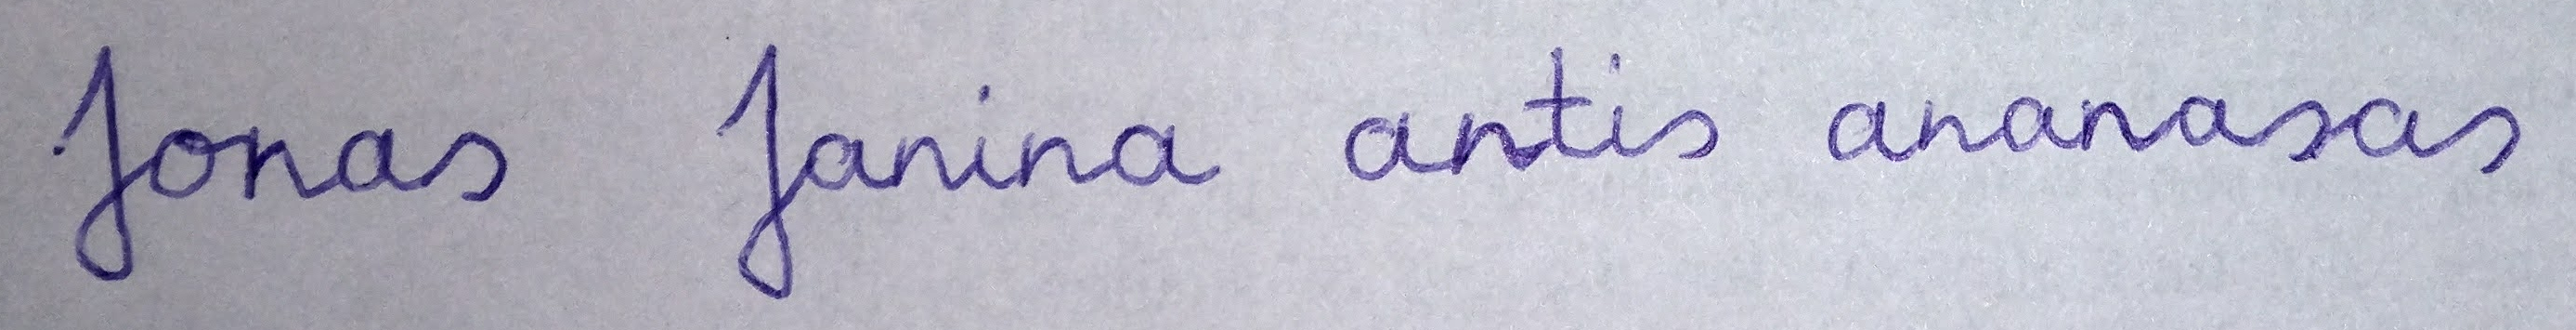 Jonas Janina antis ananasas